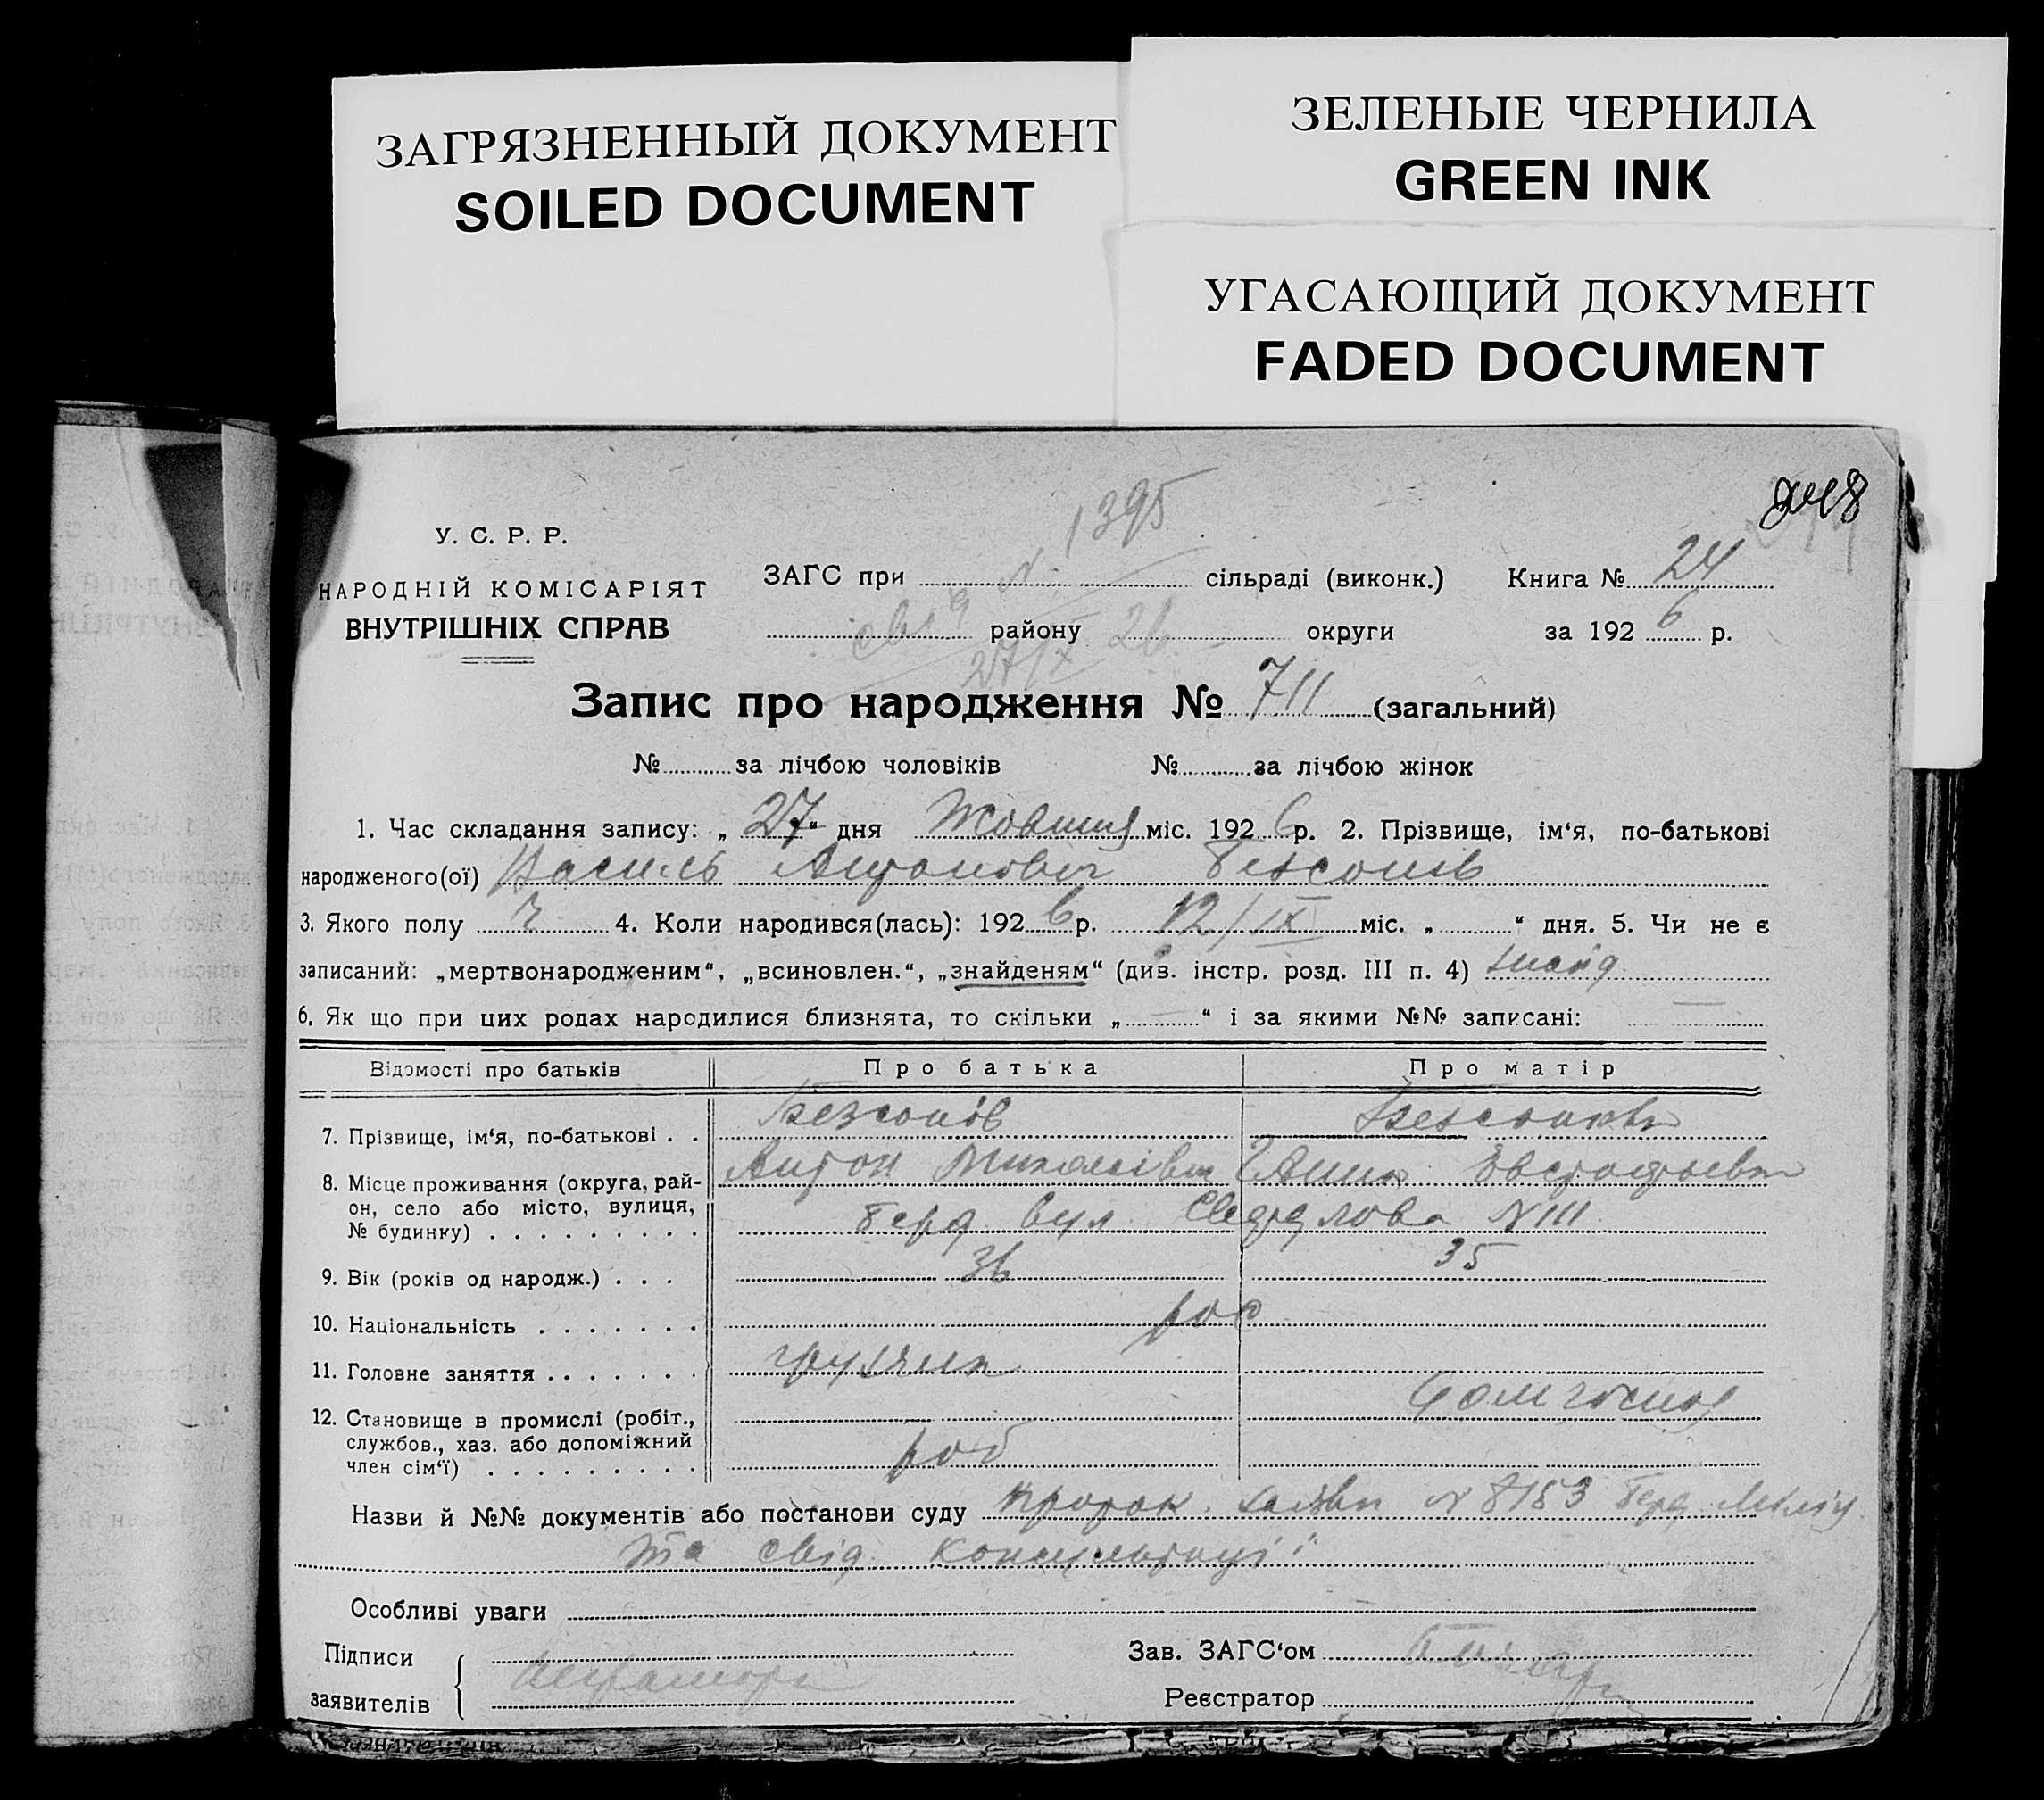 ЗАГРЯЗНЕННЫЙ ДОКУМЕНТ
SOILED DOCUMENT
ЗЕЛЕНЫЕ ЧЕРНИЛА
GREEN INK
УГАСАЮЩИЙ ДОКУМЕНТ
FADED DOCUMENT
248
1395
У. С. Р. Р.
НАРОДНІЙ КОМІСАРІЯТ
ВНУТРІШНІХ СПРАВ
ЗАГС при № сільраді (виконк.) Книга № 24
свід району округи за 192 6 р.
27/X 26
Запис про народження № 711 (загальний)
№ за лічбою чоловіків № за лічбою жінок
1. Час складання запису: „ 27 “ дня Жовтня міс. 192 6 р. 2. Прізвище, ім‘я, по-батькові
народженого(ої) Василь Антонович Безсонів
3. Якого полу ч 4. Коли народився(лась): 192 6 р. 12/IX міс. „ “ дня. 5. Чи не є
записаний: „мертвонародженим“, „всиновлен.“, „знайденям“ (див. інстр. розд. III п. 4) знайд
6. Як що при цих родах народилися близнята, то скільки „ — “ і за якими №№ записані: —
Відомості про батьків Про батька Про матір
7. Прізвище, ім‘я, по-батькові . . Безсонів Безсонова
Антон Миколаївич Ганна Евстафьевна
8. Місце проживання (округа, рай-
он, село або місто, вулиця,
№ будинку) . . . . . . . . . Берд вул Свердлова № 111
9. Вік (років од народж.) . . . 36 35
10. Національність . . . . . . . рос
11. Головне заняття . . . . . . . грузчик
домгоспод
12. Становище в промислі (робіт.,
службов., хаз. або допоміжний
член сім‘ї) . . . . . . . . . роб
Назви й №№ документів або постанови суду Проток. заяви № 8153 Берд Міліц
та свід. консультації
Особливі уваги
Підписи
заявителів
Зав. ЗАГС‘ом
Реєстратор